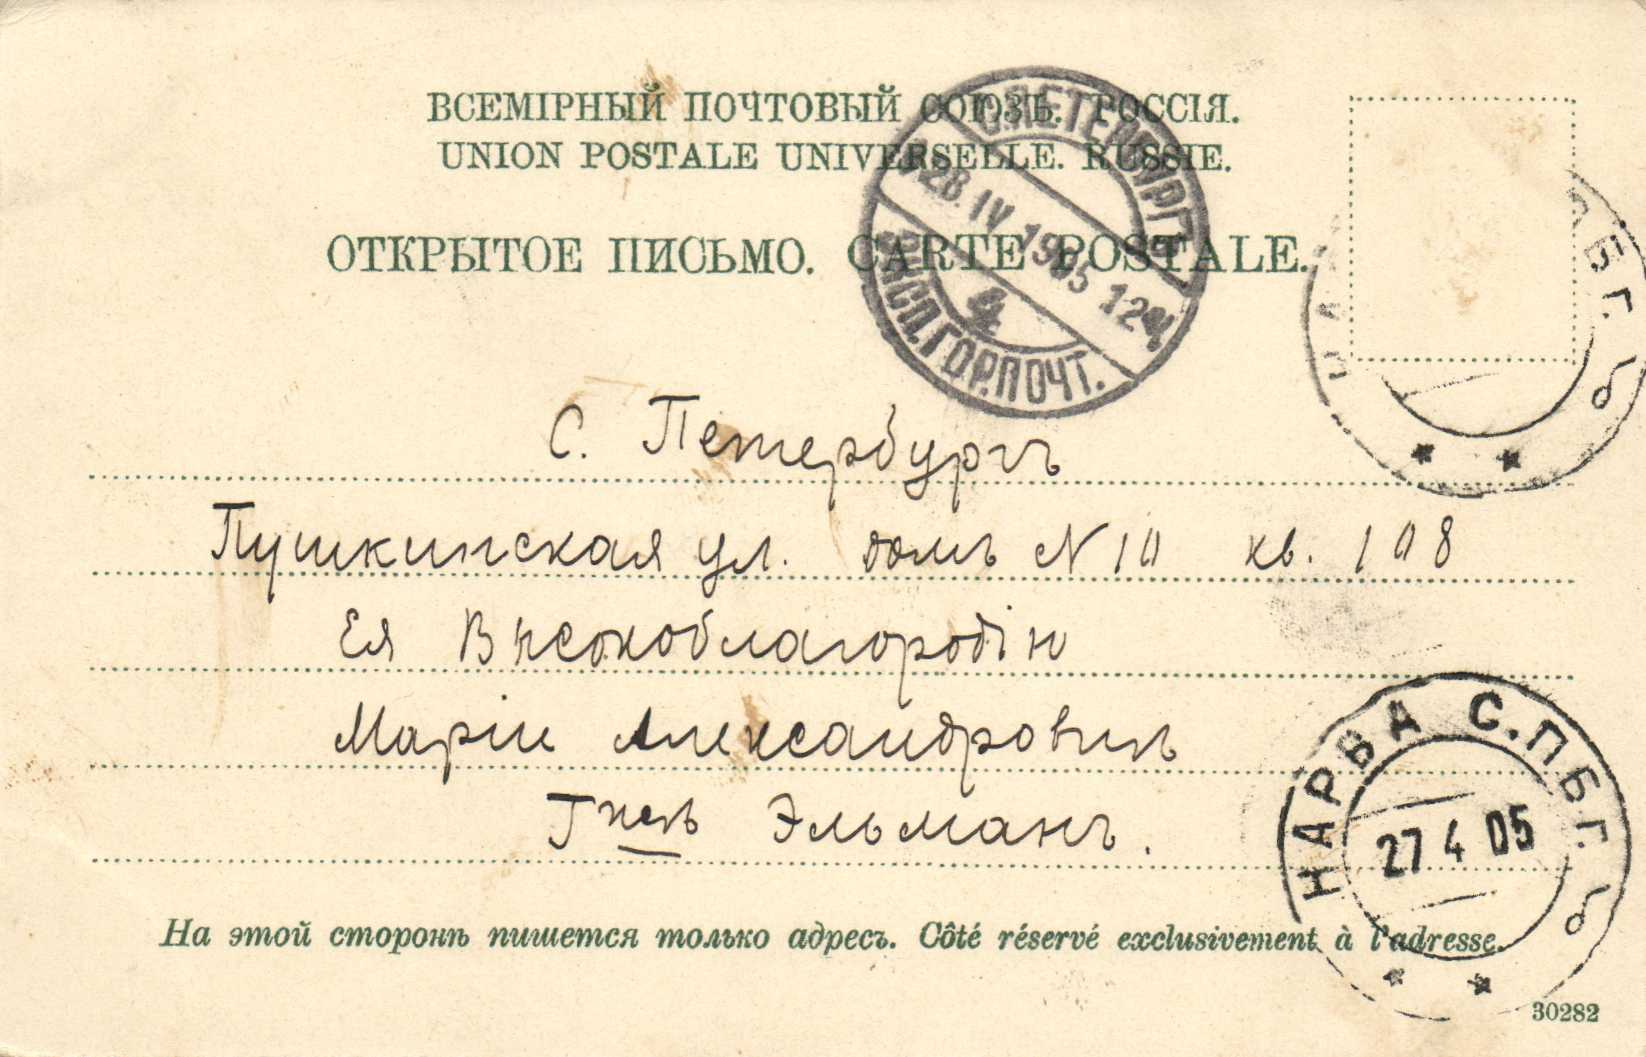 ВСЕМІРНЫЙ ПОЧТОВЫЙ СОЮЗЪ. РОССІЯ.
UNION POSTALE UNIVERSELLE. RUSSIE.
ОТКРЫТОЕ ПИСЬМО. CARTE POSTALE.
С.ПЕТЕРБУРГЪ
28.IV.1905 12Ч
4
ЭКСП.ГОР.ПОЧТ.
С. Петербургъ
Пушкинская ул. домъ N 10 кв. 108
Ея Высокоблагородію
Маріи Александровнѣ
Гжѣ Эльманъ.
НАРВА С.ПБГ.
27 4 05
На этой сторонѣ пишется только адресъ. Côté réservé exclusivement à l'adresse.
30282